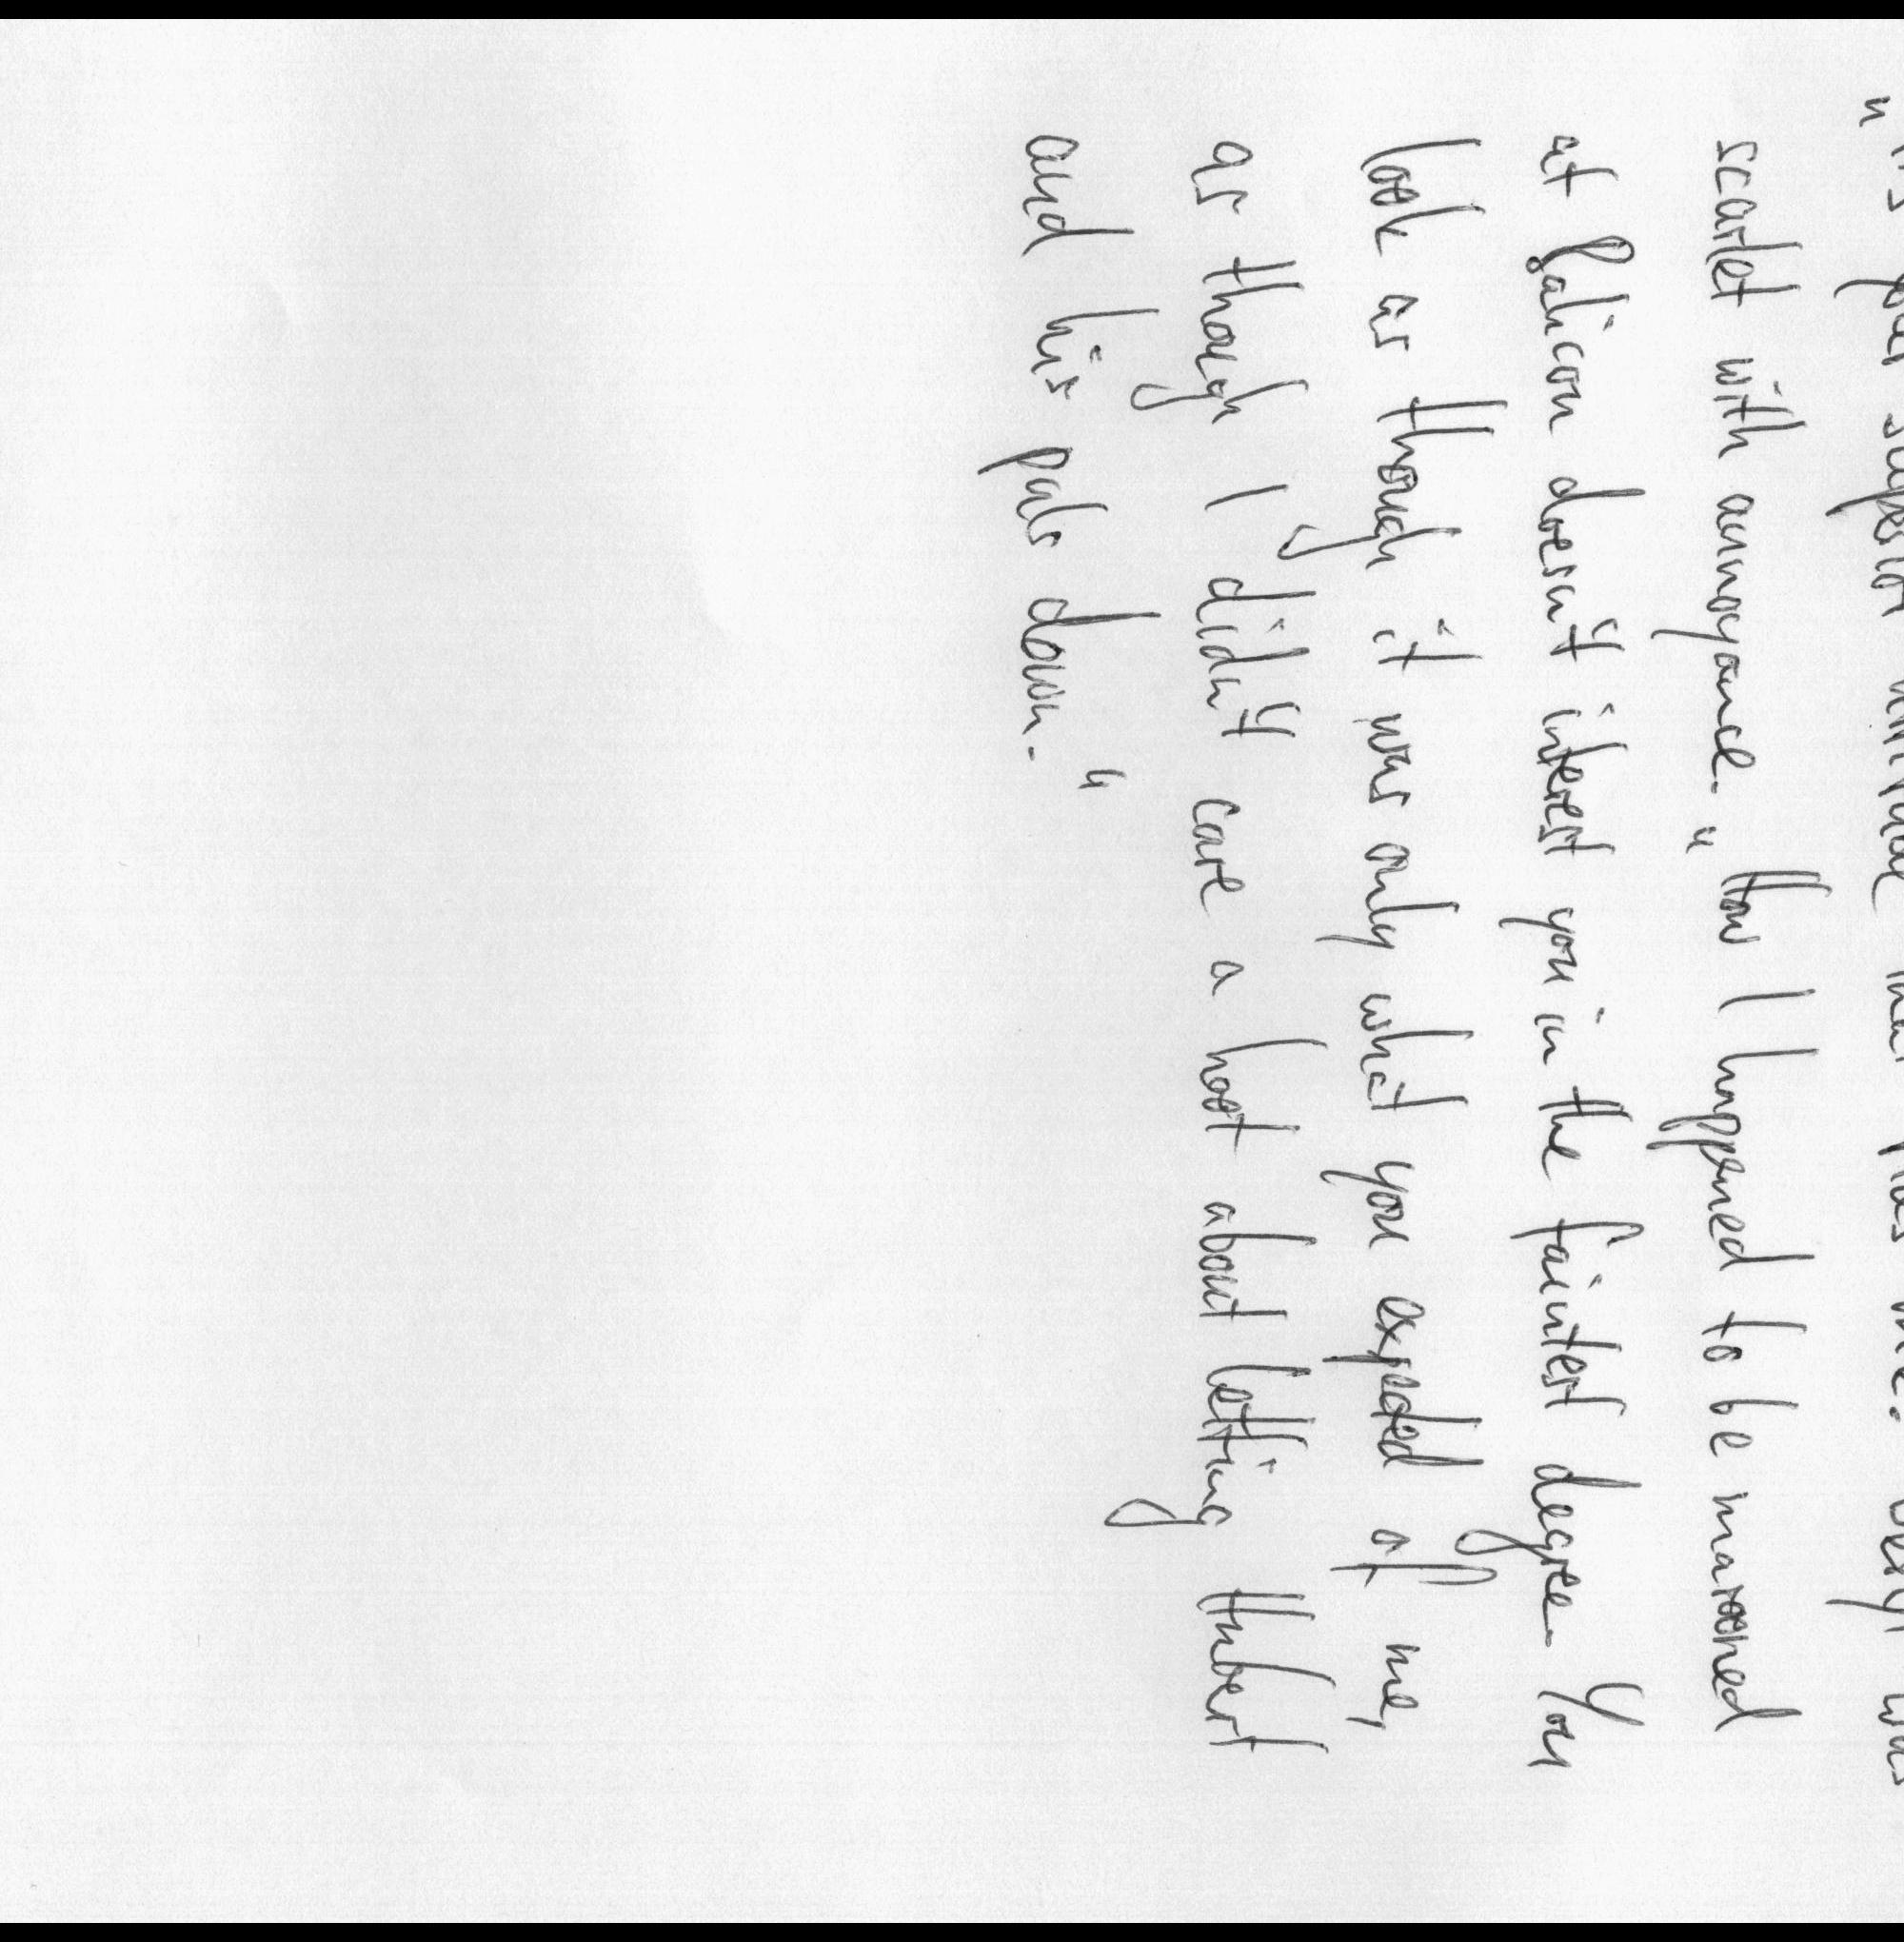 "It's your superior attitude that riles me." Beryl was
scarlet with annoyance. "How I happened to be marooned
at Palicon doesn't interest you in the faintest degree. You
look as though it was only what you expected of me,
as though I didn't care a hoot about letting Hubert
and his pals down."